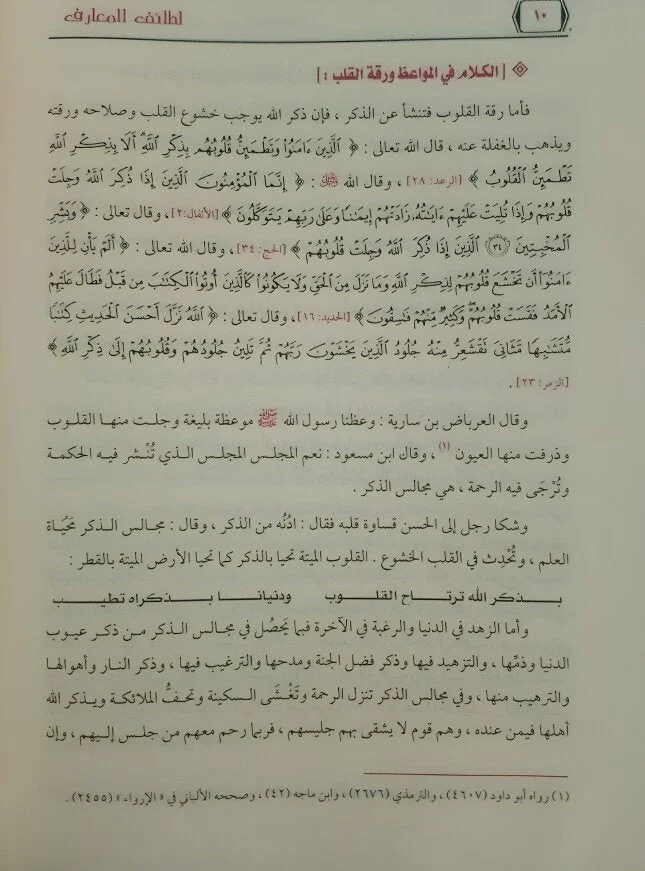 ١٠
لطائف المعارف
[ الكلام في المواعظ ورقة القلب : ]
فأما رقة القلوب فتنشأ عن الذكر ، فإن ذكر الله يوجب خشوع القلب وصلاحه ورقته
ويذهب بالغفلة عنه ، قال الله تعالى : ﴿ ٱلَّذِينَ ءَامَنُوا۟ وَتَطْمَئِنُّ قُلُوبُهُم بِذِكْرِ ٱللَّهِ ۗ أَلَا بِذِكْرِ ٱللَّهِ
تَطْمَئِنُّ ٱلْقُلُوبُ ﴾ [الرعد: ٢٨] ، وقال الله ﷺ : ﴿ إِنَّمَا ٱلْمُؤْمِنُونَ ٱلَّذِينَ إِذَا ذُكِرَ ٱللَّهُ وَجِلَتْ
قُلُوبُهُمْ وَإِذَا تُلِيَتْ عَلَيْهِمْ ءَايَـٰتُهُۥ زَادَتْهُمْ إِيمَـٰنًا وَعَلَىٰ رَبِّهِمْ يَتَوَكَّلُونَ ﴾ [الأنفال:٢] ، وقال تعالى : ﴿ وَبَشِّرِ
ٱلْمُخْبِتِينَ ﴿٣٤﴾ ٱلَّذِينَ إِذَا ذُكِرَ ٱللَّهُ وَجِلَتْ قُلُوبُهُمْ ﴾ [الحج: ٣٤] ، وقال الله تعالى : ﴿ أَلَمْ يَأْنِ لِلَّذِينَ
ءَامَنُوٓا۟ أَن تَخْشَعَ قُلُوبُهُمْ لِذِكْرِ ٱللَّهِ وَمَا نَزَلَ مِنَ ٱلْحَقِّ وَلَا يَكُونُوا۟ كَٱلَّذِينَ أُوتُوا۟ ٱلْكِتَـٰبَ مِن قَبْلُ فَطَالَ عَلَيْهِمُ
ٱلْأَمَدُ فَقَسَتْ قُلُوبُهُمْ ۖ وَكَثِيرٌ مِّنْهُمْ فَـٰسِقُونَ ﴾ [الحديد: ١٦] ، وقال تعالى : ﴿ ٱللَّهُ نَزَّلَ أَحْسَنَ ٱلْحَدِيثِ كِتَـٰبًا
مُّتَشَـٰبِهًا مَّثَانِىَ تَقْشَعِرُّ مِنْهُ جُلُودُ ٱلَّذِينَ يَخْشَوْنَ رَبَّهُمْ ثُمَّ تَلِينُ جُلُودُهُمْ وَقُلُوبُهُمْ إِلَىٰ ذِكْرِ ٱللَّهِ ﴾
[الزمر: ٢٣] .
وقال العرباض بن سارية : وعظنا رسول الله ﷺ موعظة بليغة وجلت منها القلوب
وذرفت منها العيون (١) ، وقال ابن مسعود : نعم المجلس المجلس الذي تُنْشر فيه الحكمة
وتُرْجَى فيه الرحمة ، هي مجالس الذكر .
وشكا رجل إلى الحسن قساوة قلبه فقال : ادْنُه من الذكر ، وقال : مجالس الذكر مَحْيَاة
العلم ، وتُحْدِث في القلب الخشوع . القلوب الميتة تحيا بالذكر كما تحيا الأرض الميتة بالقطر :
بـذكر الله ترتـاح القلـوب ودنيانـا بـذكراه تطيـب
وأما الزهد في الدنيا والرغبة في الآخرة فبما يَحصُل في مجالس الذكر من ذكر عيوب
الدنيا وذمِّها ، والتزهيد فيها وذكر فضل الجنة ومدحها والترغيب فيها ، وذكر النار وأهوالها
والترهيب منها ، وفي مجالس الذكر تنزل الرحمة وتَغْشَى السكينة وتحفُّ الملائكة ويذكر الله
أهلها فيمن عنده ، وهم قوم لا يشقى بهم جليسهم ، فربما رحم معهم من جلس إليهم ، وإن
(١) رواه أبو داود (٤٦٠٧) ، والترمذي (٢٦٧٦) ، وابن ماجه (٤٢) ، وصححه الألباني في « الإرواء » (٢٤٥٥) .